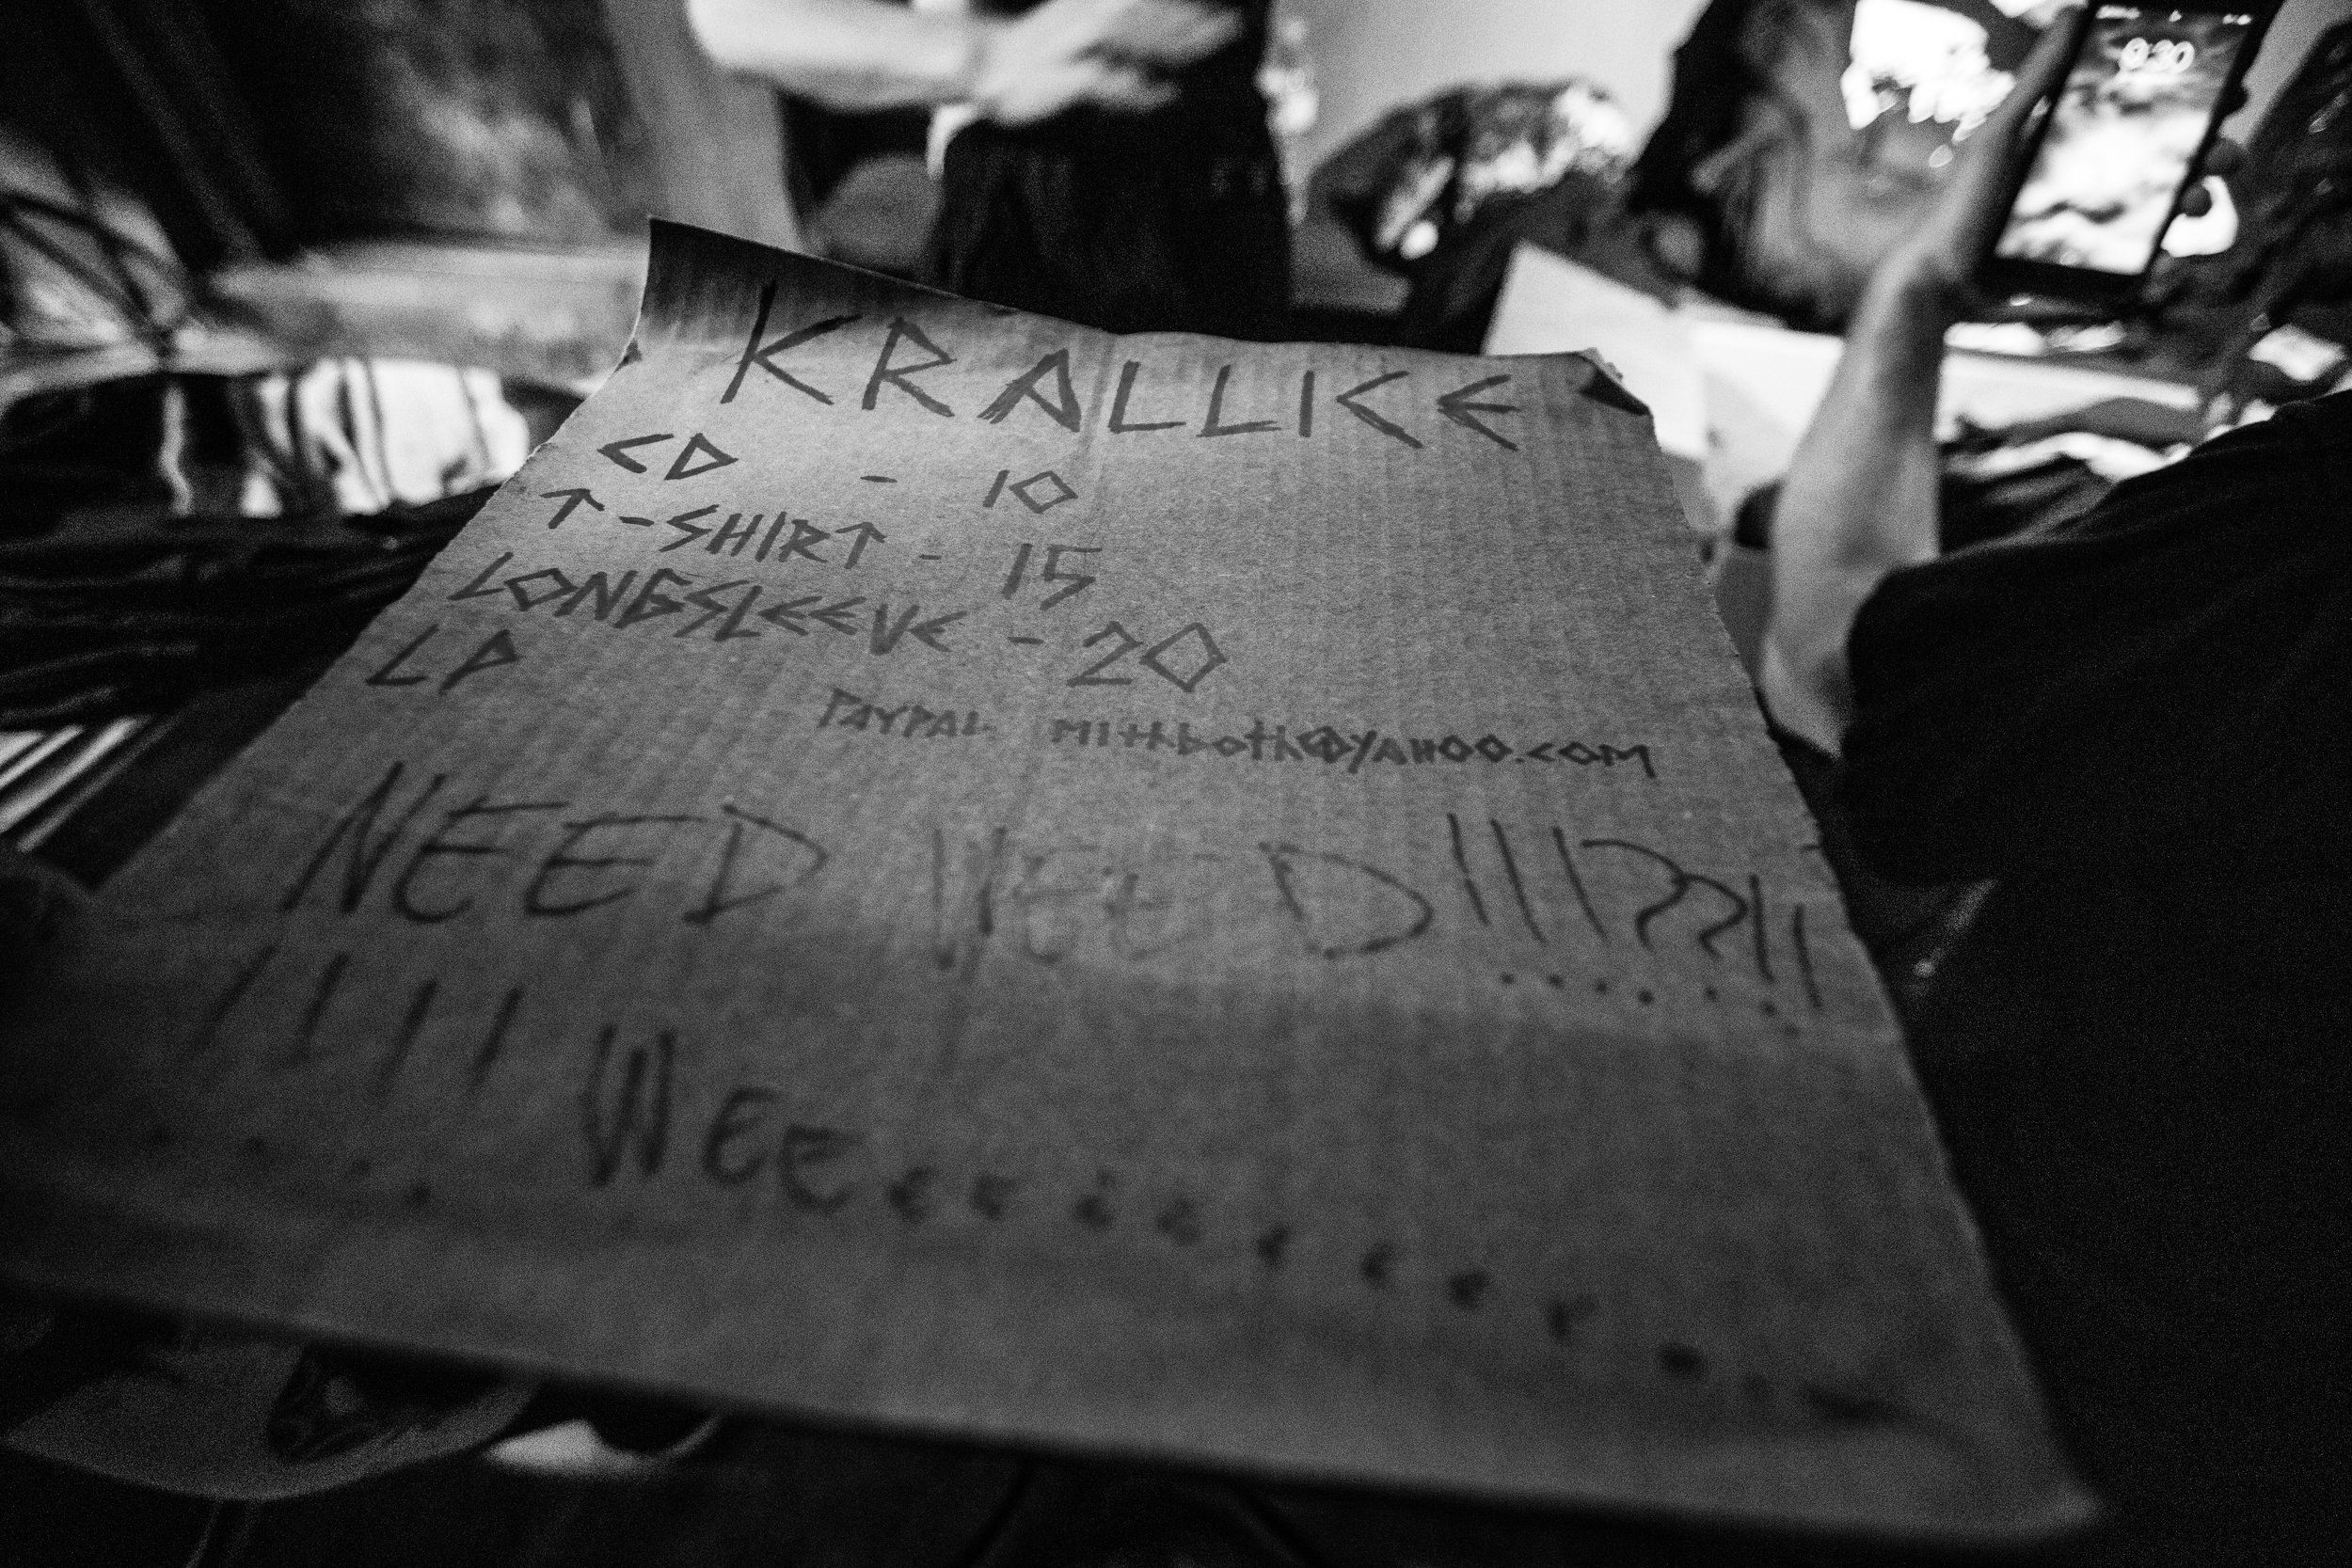 KRALLICE
CD - 10
T-SHIRT - 15
LONGSLEEVE - 20
LP
PAYPAL mithboth@yahoo.com
NEED WEED!!!??!!
!!!! WEEeeeeeeee